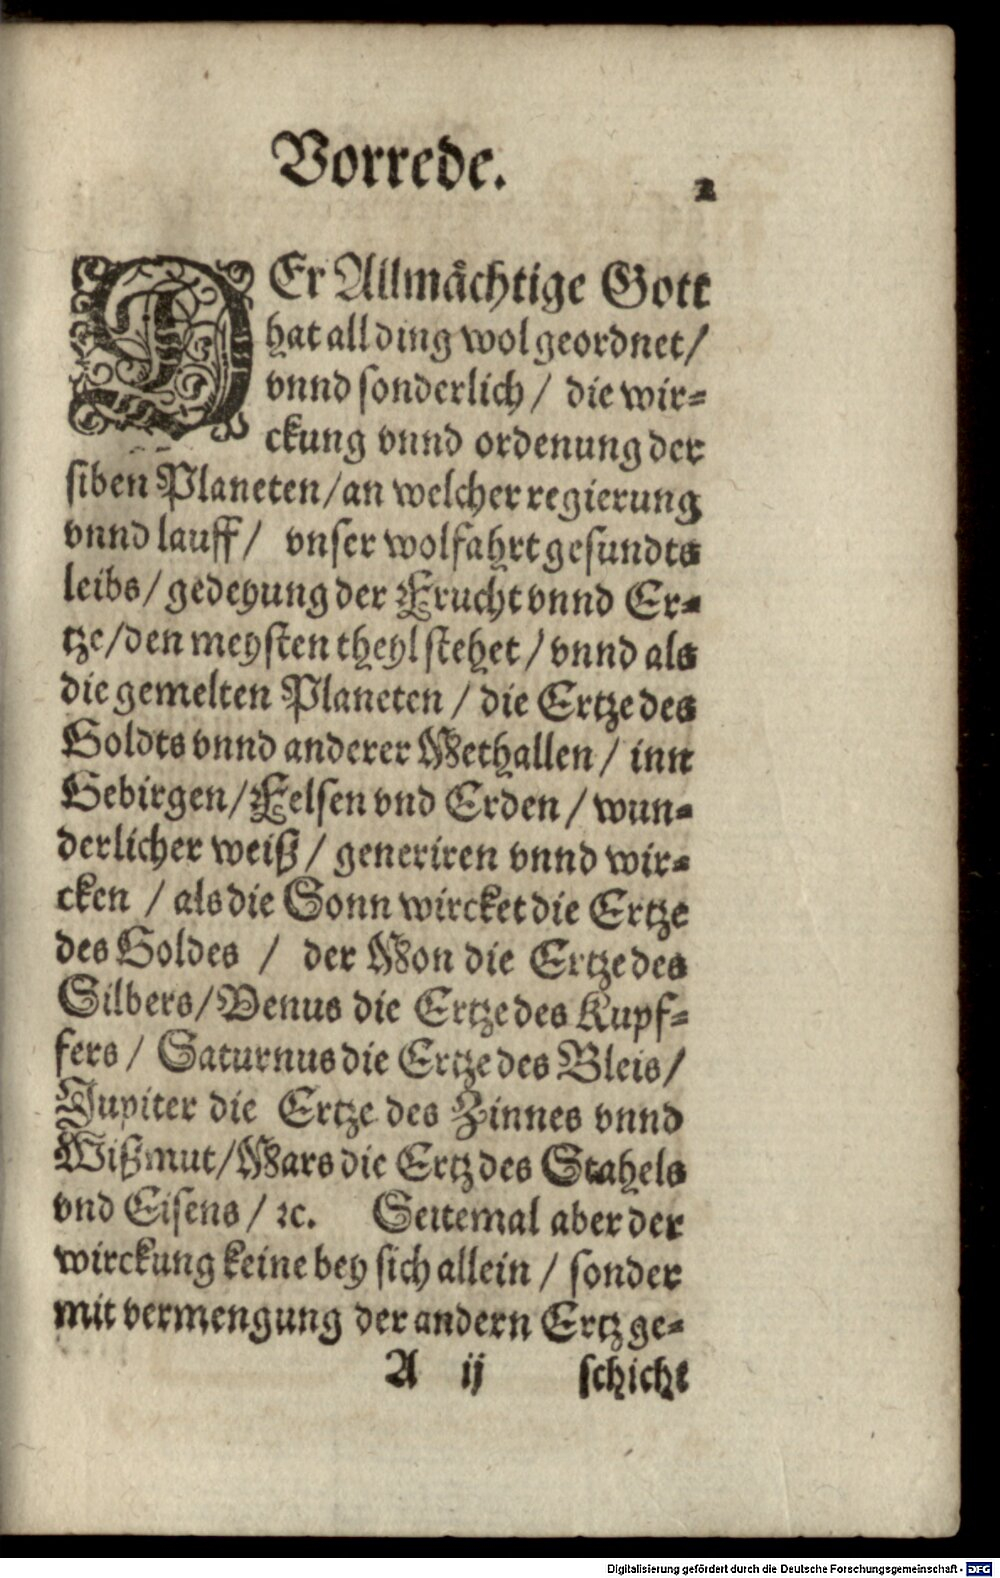 Vorrede.
2
DEr Allmächtige Gott
hat all ding wol geordnet/
vnnd sonderlich / die wir-
ckung vnnd ordenung der
siben Planeten/an welcher regierung
vnnd lauff/ vnser wolfahrt gesundts
leibs/ gedeyung der Frucht vnnd Er-
tze/den meysten theyl stehet/ vnnd als
die gemelten Planeten / die Ertze des
Goldts vnnd anderer Methallen/ inn
Gebirgen/Felsen vnd Erden / wun-
derlicher weiß / generiren vnnd wir-
cken / als die Sonn wircket die Ertze
des Goldes / der Mon die Ertze des
Silbers/Venus die Ertze des Kupf-
fers/ Saturnus die Ertze des Bleis/
Jupiter die Ertze des Zinnes vnnd
Wißmut/Mars die Ertz des Stahels
vnd Eisens / ꝛc. Seitemal aber der
wirckung keine bey sich allein / sonder
mit vermengung der andern Ertz ge-
A ij schicht
Digitalisierung gefördert durch die Deutsche Forschungsgemeinschaft - DFG